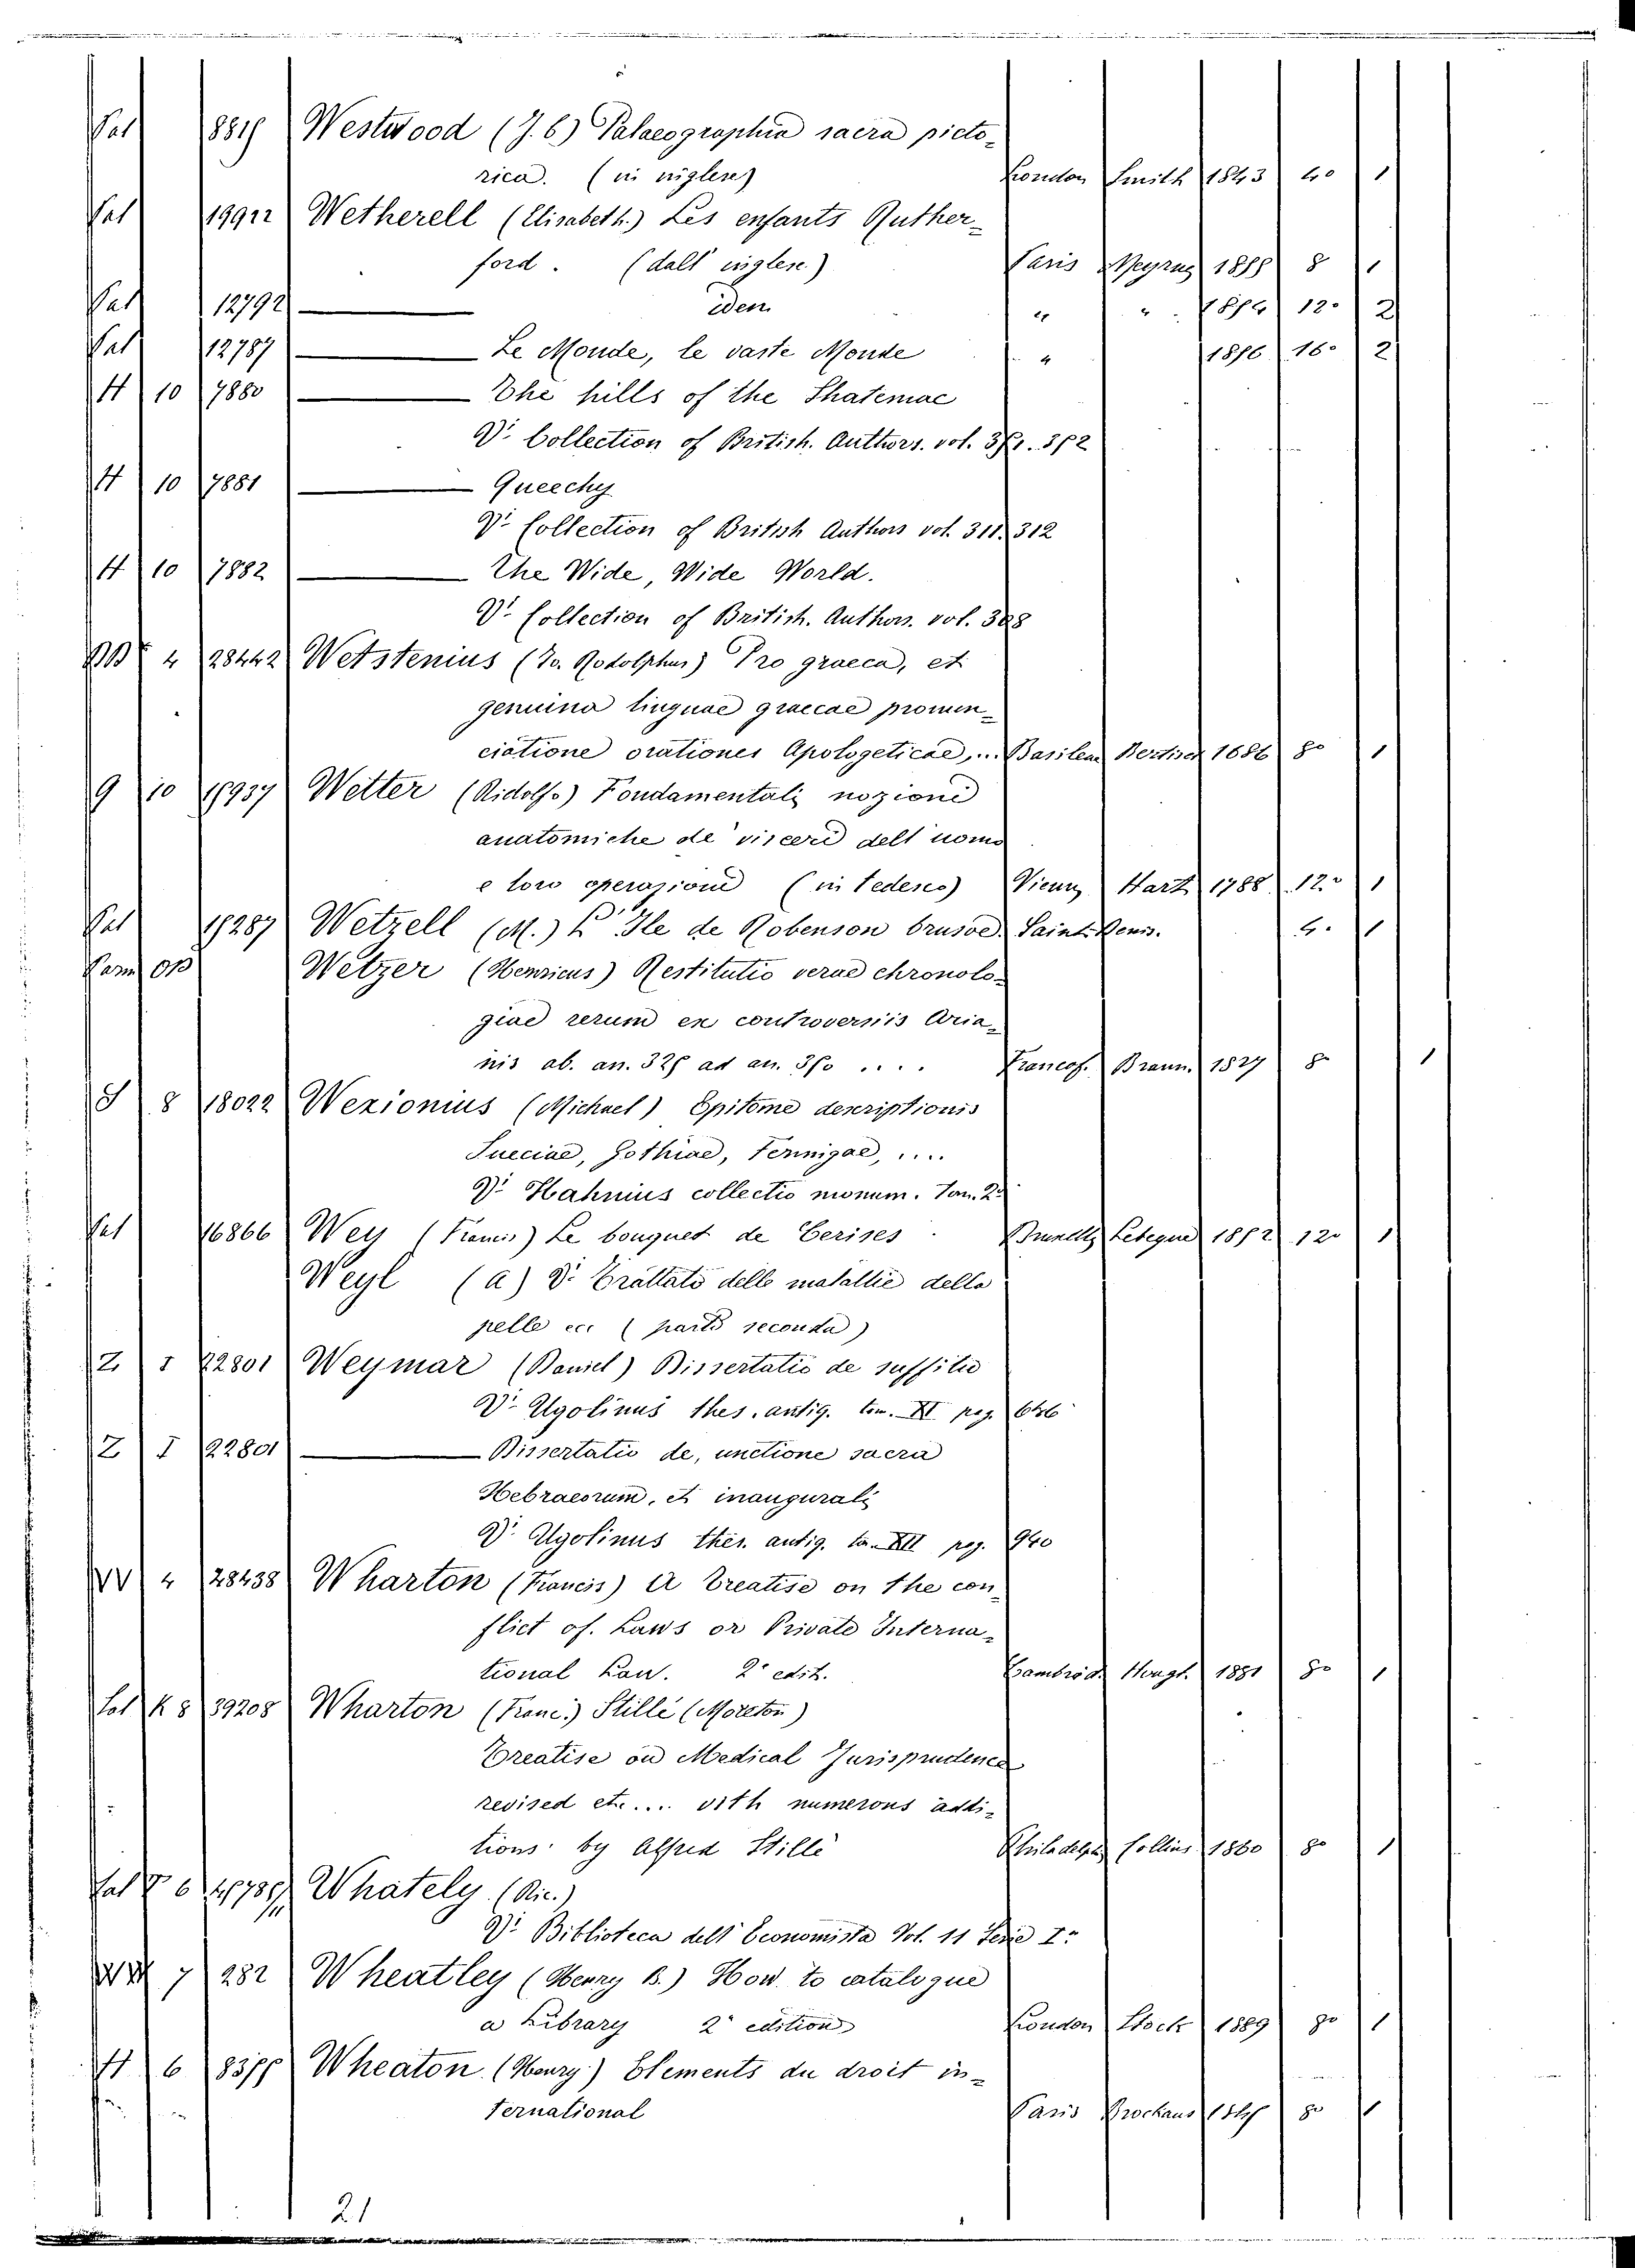 Sal 8815 Westwood (J. O) Palaeographia sacra picto-
rica. (in inglese) London Smith 1843 4o 1
Sal 19912 Wetherell (Elisabeth) Les enfants Ruther-
ford. (dall' inglese.) Paris Meyrueis 1858 8 1
Sal 12792 — idem " " 12o 2
Sal 12787 — Le Monde, le vaste Monde " 1856 16o 2
H 10 7880 — The hills of the Shatemac
Vi Collection of British. Authors. vol. 351. 352
H 10 7881 — Queechy
Vi Collection of British Authors vol. 311. 312
H 10 7882 — The Wide, Wide World.
Vi Collection of British. Authors. vol. 308
4 28442 Wetstenius (Jo. Rodolphus) Pro graeca, et
genuina linguae graecae pronun-
ciatione orationes Apologeticae, ... Basileae 1686 8o 1
9 10 15937 Wetter (Ridolfo) Fondamentali nozioni
anatomiche de' visceri dell' uomo
e loro operazioni (in Tedesco) Vienna Hartz 1788 12o 1
Sal 15287 Wetzell (M.) L' Ile de Robenson brusoe. Saint-Denis. 4. 1
Wetzer (Henricus) Restitutio verae chronolo-
giae rerum ex controversiis Aria-
nis ab. an. 325 ad an. 350 .... Francof. Braun. 1827 8o 1
8 18022 Wexionius (Michael) Epitome descriptionis
Sueciae, Gothiae, Fennigae, ....
Vi Hahnius collectio monum. Tom. 2o
Sal 16866 Wey (Francis) Le bouquet de Cerises Bruxelles Lebegue 1852 12o 1
Weyl (A) Vi Trattato delle malattie della
pelle ecc (parte seconda)
Z I 22801 Weymar (Daniel) Dissertatio de suffitu
Vi Ugolinus thes. antiq. tom. XI pag. 646
Z I 22801 — Dissertatio de, unctione sacra
Hebraeorum, et inaugurali
Vi Ugolinus thes. antiq. to. XII pag. 940
VV 4 28438 Wharton (Francis) A Treatise on the con-
flict of. Laws or Private Interna-
tional Law. 2a edit. Cambridg 1881 8o 1
Sal K 8 39208 Wharton (Franc.) Stillé (Moreton)
Treatise on Medical Jurisprudence
revised etc.... vith numerous addi-
tions by Alfred Stillé Philadelphia Collins 1860 8o 1
Sal 6 Whately (Ric.)
Vi Biblioteca dell' Economista Vol. 11 Serie Ia
7 282 Wheatley (Henry B.) How to catalogue
a Library 2a edition London Stock 1889 8o 1
H 6 8355 Wheaton (Henry) Elements du droit in-
ternational Paris Brockaus 8o 1
21